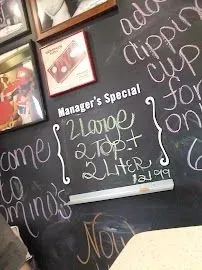 Manager's Special
2 Large
2 Top.
2 Liter
$21.99
add
dipping
cup
for
on
ome
to
omino's
Now